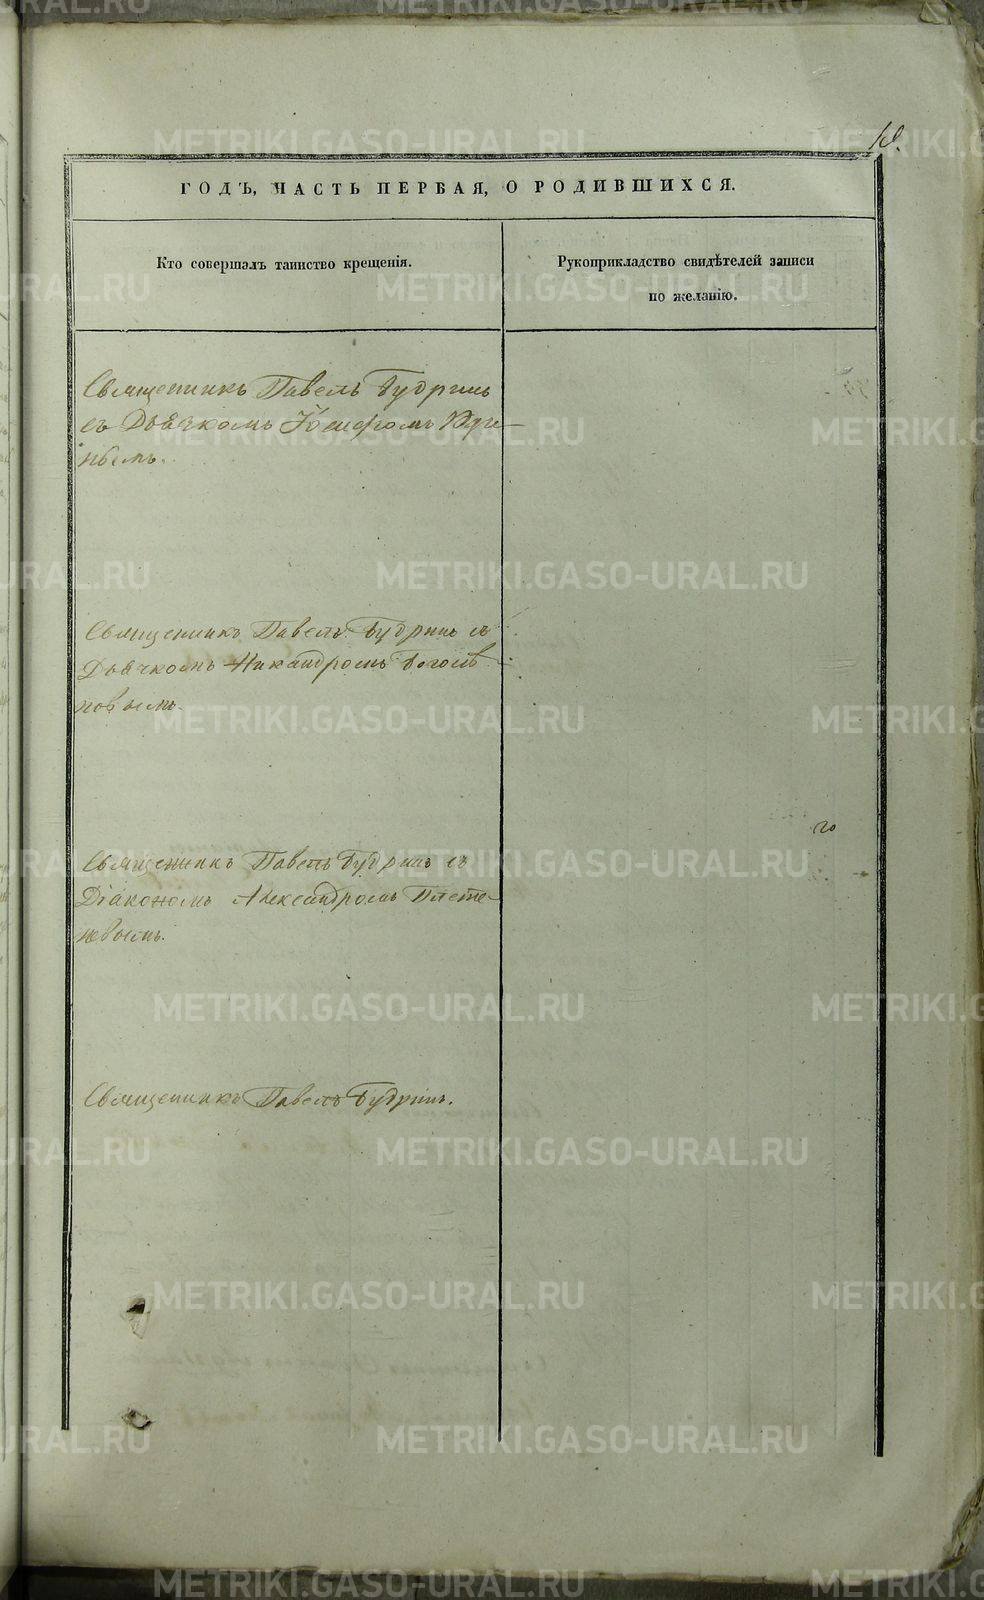 10.
ГОДЪ, ЧАСТЬ ПЕРВАЯ, О РОДИВШИХСЯ.
Кто совершалъ таинство крещенія.
Рукоприкладство свидѣтелей записи
по желанію.
Священникъ Павелъ Будринъ
съ Дьячкомъ Іосифомъ
Священникъ Павелъ Будринъ съ
Дьячкомъ Никандромъ Боголѣ
повымъ.
Священникъ Павелъ Будринъ съ
Діакономъ Александромъ Плете-
невымъ.
Священникъ Павелъ Будринъ.
METRIKI.GASO-URAL.RU